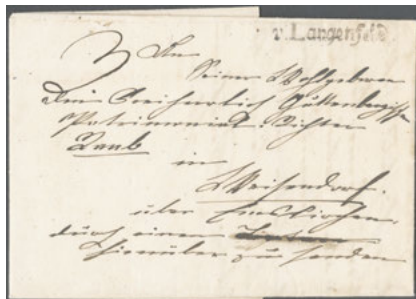 v. Langenfeld.
An
Seiner Wohlgeboren
Freiherrlich Guttenbergischen
Patrimonial-Richter
Raub
in
Weisendorf.
über Emskirchen.
durch einen
hierüber zu senden